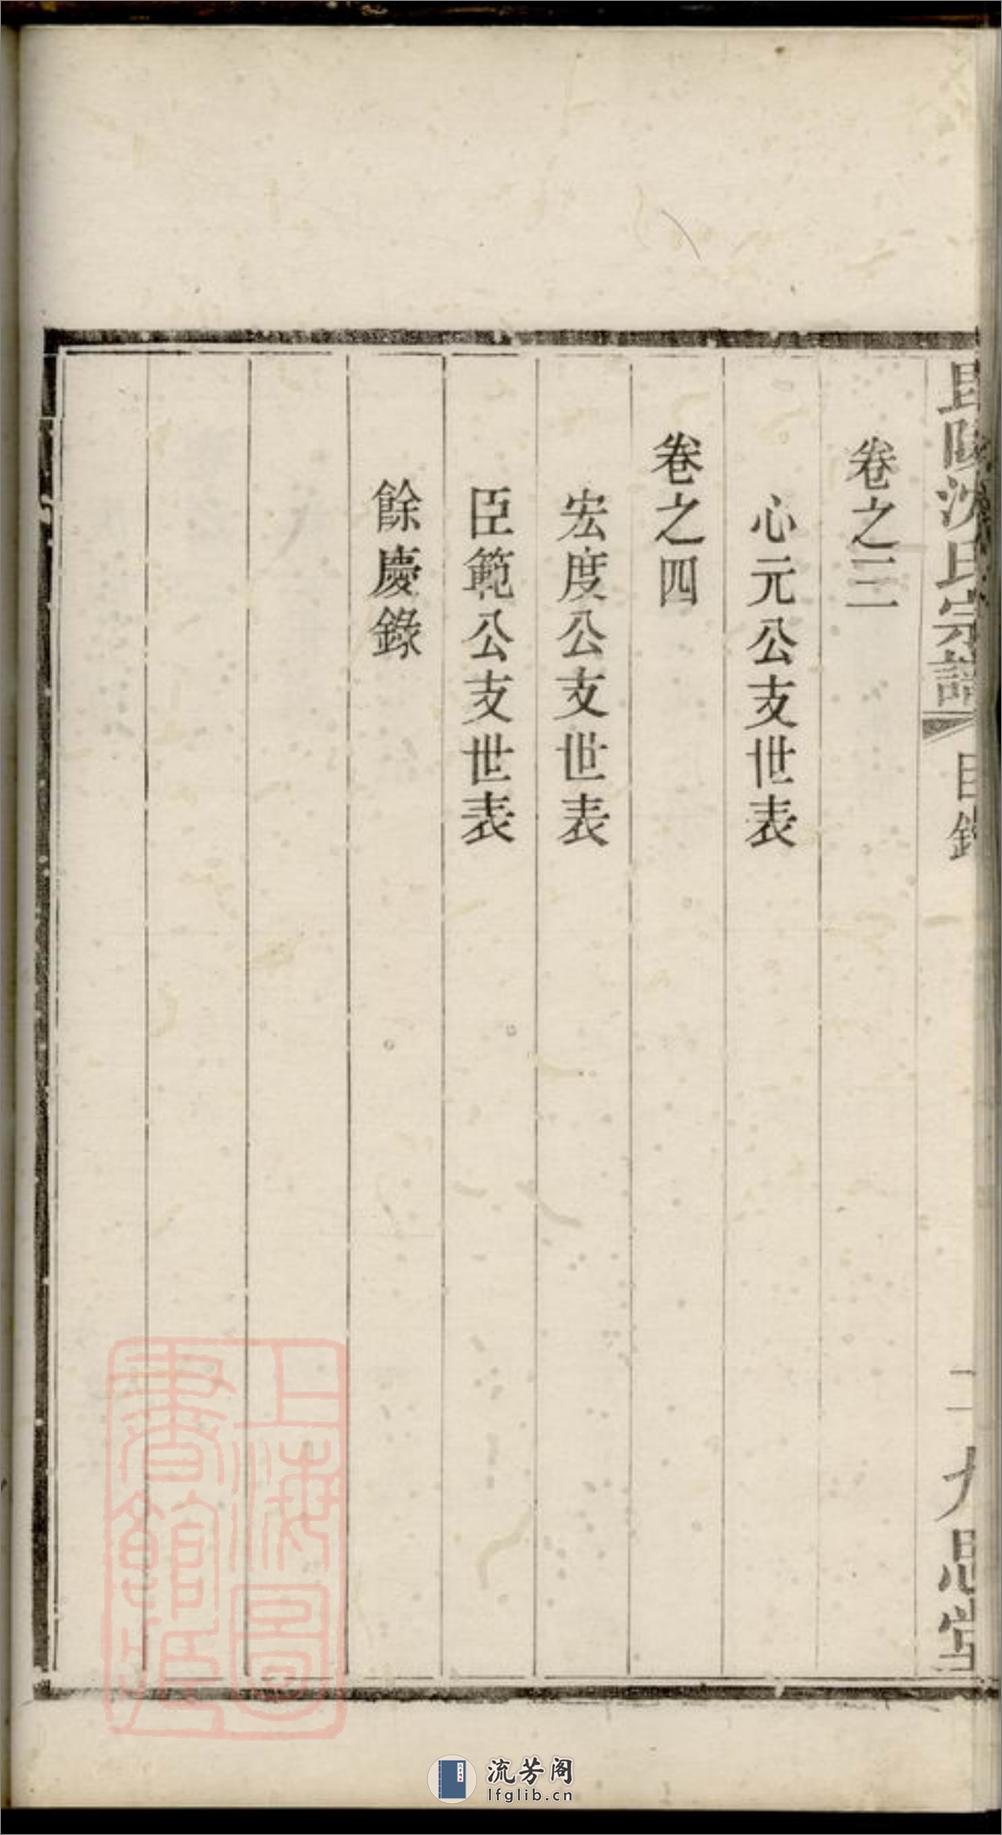 毘陵沈氏宗譜 目錄 二 九思堂
卷之三
心元公支世表
卷之四
宏度公支世表
臣範公支世表
餘慶錄
上海圖
書館藏
流芳阁
lfglib.cn